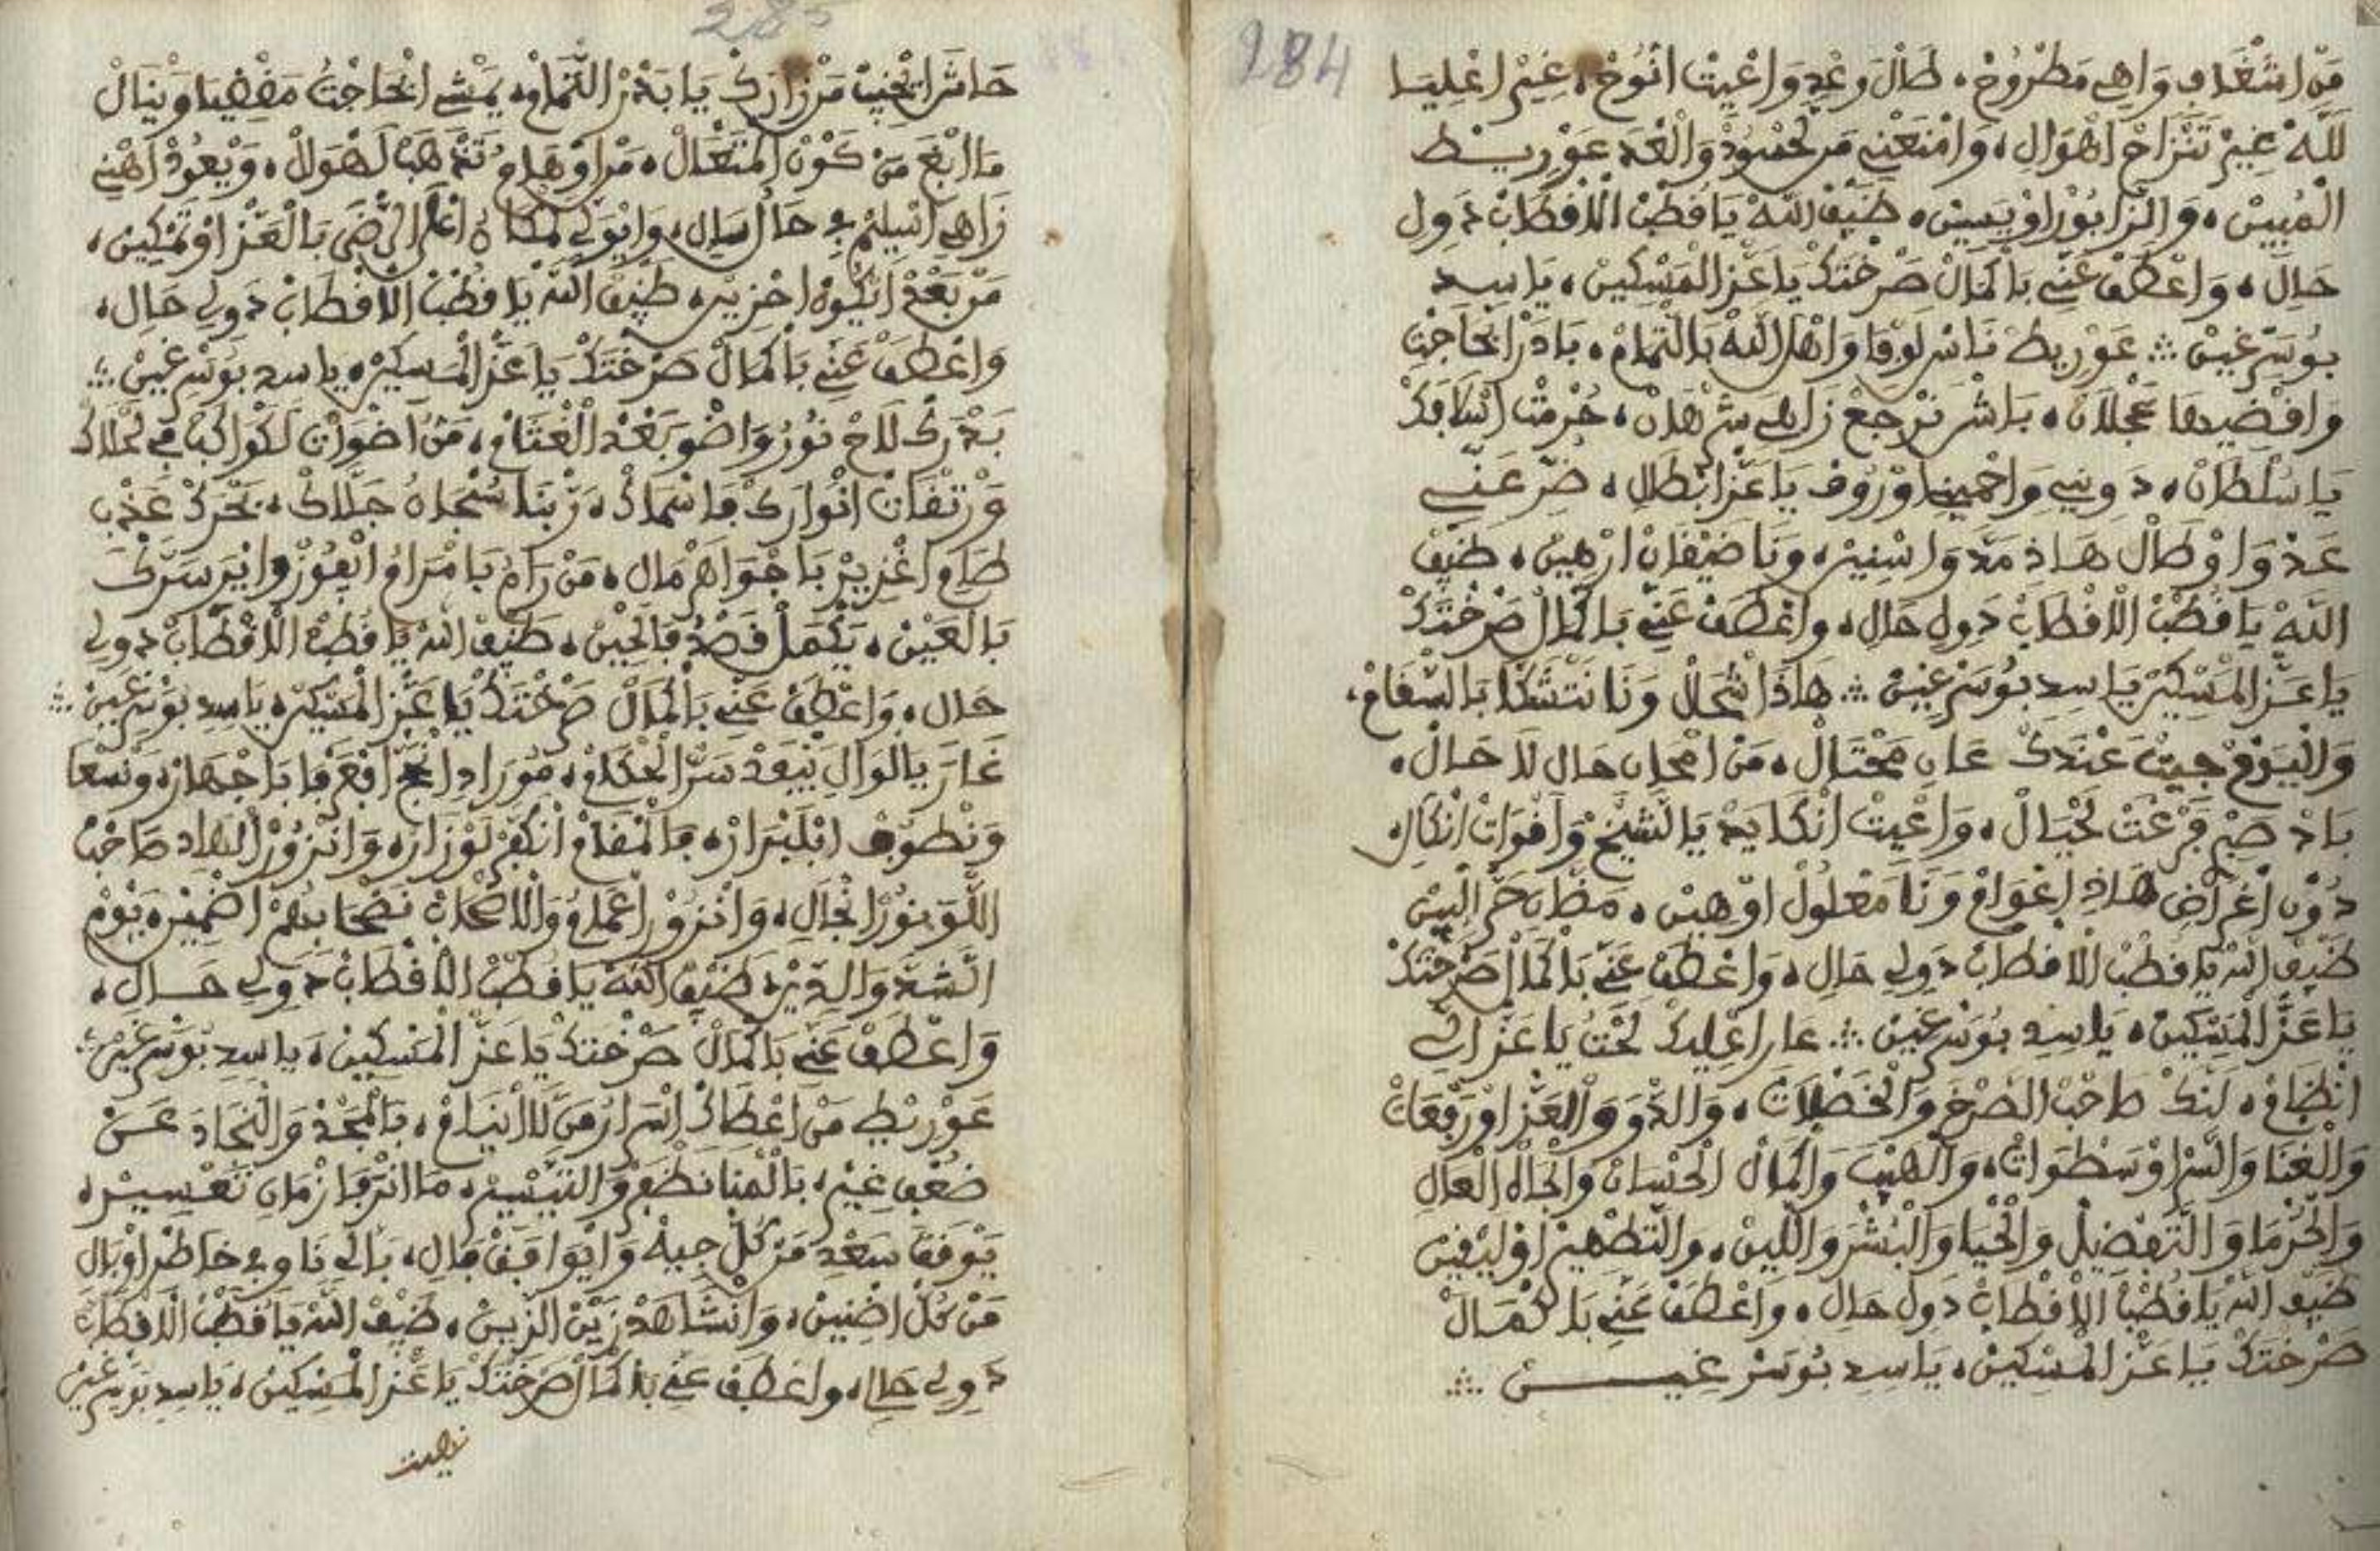 284
مَنّ اشْغَابِ وَاهِي مَطْرُوحْ، طَالْ وَعْدِ وَاعْيِيتْ انُّوحْ، غِيرْ اعْلِيَا
لَلَّهْ غِيرْ تَنْزَاحْ اهْوَالِ، وَامْنَعْنِي مَن لَحْسُودْ وَالْعْدَ عَوْرِيط
الْمُبِينْ، وَالزَّابُورْ اوْيَسِينْ، ضَيْف اللَّهْ يَا قُطْبْ الَاقْطَابْ دَاوِي
حَالِ، وَاعْطَفْ عَنِّي بَاكْمَالْ صَرْخْتَكْ يَا عَزْ المَسْكِينْ، يَا سِيدِ
بُوسَرْغِينْ ∴ عَوْرِيطْ نَاسْ لَوْفَا وَاهْلْ اللَّهْ بَالتّْمَامْ، بَادَرْ الحَاجْتِ
وَاقْضِيهَا عَجْلَانْ، بَاشْ نَرْجَعْ زَاهِي شَرْهَانْ، حُرْمْتْ اسْلَافَكْ
يَا سُلْطَانْ، دَاوِينِي وَاحْمِينِ اوْرُوفْ يَا عَزْ ابْطَالِ، ضَرْ عَنِّي
عَدْوَا وْطَالْ هَاذِ مَدَّ وَاسْنِينْ، وَنَا ضَيْفَانْ ارْهِينْ، ضَيْف
اللَّهْ يَا قُطْبْ الَاقْطَابْ دَاوِي حَالِ، وَاعْطَفْ عَنِّي بَاكْمَالْ صَرْخْتَكْ
يَا عَزْ المَسْكِينْ يَا سِيدِ بُوسَرْغِينْ ∴ هَاذَا شْحَالْ وَنَا نَتْشَكَّا بَالسّْقَامْ،
وَالْيُومْ جِيتْ عَنْدَكْ عَانِ مَحْتَالْ، مَنْ امْحَانِ حَالِ لَا حَالْ،
بَادْ صَبْرِ فَرْغَتْ لَحْيَالْ، وَاعْيِيتْ انْكَايَدْ يَا الشِّيخْ وَاقْوَاتْ انْكَالِ
دُونْ اغْرَاضِ هَاذِ اعْوَامْ وَنَا مَعْلُولْ اوْهِينْ، مَضَّانِ حَرْ الْبِينْ
ضَيْف اللَّهْ يَا قُطْبْ الَاقْطَابْ دَاوِي حَالِ، وَاعْطَفْ عَنِّي بَاكْمَالْ صَرْخْتَكْ
يَا عَزْ المَسْكِينْ، يَا سِيدِ بُوسَرْغِينْ ∴ عَارِ اعْلِيكْ لَحْتُ يَا عَزْ
انْضَامْ، لَنَّكْ صَاحْبْ الصَّرْخَ وَالْخَصْلَاتْ، وَالدّْوَ وَالْعَزْ اوْرَفْعَاتْ
وَالْغْنَا وَالسَّرْ اوْسَطْوَاتْ، وَالْهِيبَ وَالْكْمَالْ الْحْسَانْ وَالْجَاهْ الْعَالِ
وَالْحُرْمَا وَالتَّفْضِيلْ وَالْحْيَا وَالْبُشْرَ وَاللِّينْ، وَالتَّطْهِيرْ اوْلِيقِينْ
ضَيْف اللَّهْ يَا قُطْبْ الَاقْطَابْ دَاوِي حَالِ، وَاعْطَفْ عَنِّي بَاكْمَالْ
صَرْخْتَكْ يَا عَزْ المَسْكِينْ، يَا سِيدِ بُوسَرْغِينْ ∴
285
حَاشَا يْخِيبْ مَنْ زَارَكْ يَا بَدْرْ التّْمَامْ، يَمْشِي ابْحَاجْتُ مَقْضِيَا وَيْنَالْ
مَا ابْغَ مَنْ كَوْنْ المُتْعَالْ، مَرْاوْهَامُ تَذْهَبْ لَهْوَالْ، وَيْعُودْ اهْنِي
زَاهِي اسْلِيمْ فِي حَالْ، وَايْوَلِّي لَمْكَانُ اعْلَى الرّْضَى بَالْعَزْ اوْتَمْكِينْ،
مَنْ بَعْدْ ايْكُونْ احْزِينْ، ضَيْف اللَّهْ يَا قُطْبْ الَاقْطَابْ دَاوِي حَالِ،
وَاعْطَفْ عَنِّي بَاكْمَالْ صَرْخْتَكْ يَا عَزْ المَسْكِينْ، يَا سِيدِ بُوسَرْغِينْ ∴
بَدْرَكْ لَاحْ نُورُ وَاضْوَ بَعْدْ الْغْتَامْ، مَنُّ اضْوَاتْ لَكْوَاكَبْ فِي لَحْلَاكْ
وَرْتَفْعَاتْ انْوَارَكْ فَاسْمَاكْ، رَبْنَا سُبْحَانُ جَلَّاكْ، بَحْرَكْ عَذْبِ
طَامِ اغْزِيرْ بَاجْوَاهَرْ مَالِ، مَنْ رَامُ بَامْرَامُ ايْفُوزْ وَايْرَ سَرَّكْ
بَالْعَيْنْ، يَكْمَلْ قَصْدُ فَالْحِينْ، ضَيْف اللَّهْ يَا قُطْبْ الَاقْطَابْ دَاوِي
حَالِ، وَاعْطَفْ عَنِّي بَاكْمَالْ صَرْخْتَكْ يَا عَزْ المَسْكِينْ، يَا سِيدِ بُوسَرْغِينْ ∴
غَارَ يَا لْوَالِ يَنْفَدْ سَرْ الْحْكَامْ، مُورَادِ افْعَرْفَا بَاجْهَارْ، وَنْسْعَا
وَنْطُوفْ ابْلَبْرَارْ، فَالْمْقَامْ انْكَفَّرْ لَوْزَارْ، وَانْزُورْ الْهَادِ صَاحْبْ
اللّْوَ نُورْ انْجَالِ، وَانْزُورْ اعْمَامُ وَالَاصْحَابْ نَضْحَا بِهُمْ اضْمِينْ، يُومْ
الشَّدَّ وَالدِّينْ، ضَيْف اللَّهْ يَا قُطْبْ الَاقْطَابْ دَاوِي حَالِ،
وَاعْطَفْ عَنِّي بَاكْمَالْ صَرْخْتَكْ يَا عَزْ المَسْكِينْ، يَا سِيدِ بُوسَرْغِينْ ∴
عَوْرِيطِ مَنْ اعْطَاكْ اسْرَارُ مَنْ لَا يْنَامْ، بَالْمْجَدْ وَالنّْجَادَ عَنْ
ضُعْفِ غِيرْ، بَالْمْنَا نَظْفَرْ وَالتَّيْسِيرْ، مَا انْرَ فَازْمَانِ تَعْسِيرْ،
يَوْفَقْ سَعْدِ مَنْ كُلّْ جِيهْ وَايْوَافَقْ فَالِ، بَالِّي نَاوِي فِي خَاطْرِ اوْبَالِ
مَنْ كُلّْ اضْنِينْ، وَانْشَاهَدْ زِينْ الزِّينْ، ضَيْف اللَّهْ يَا قُطْبْ الَاقْطَابْ
دَاوِي حَالِ، وَاعْطَفْ عَنِّي بَاكْمَالْ صَرْخْتَكْ يَا عَزْ المَسْكِينْ، يَا سِيدِ بُوسَرْغِينْ